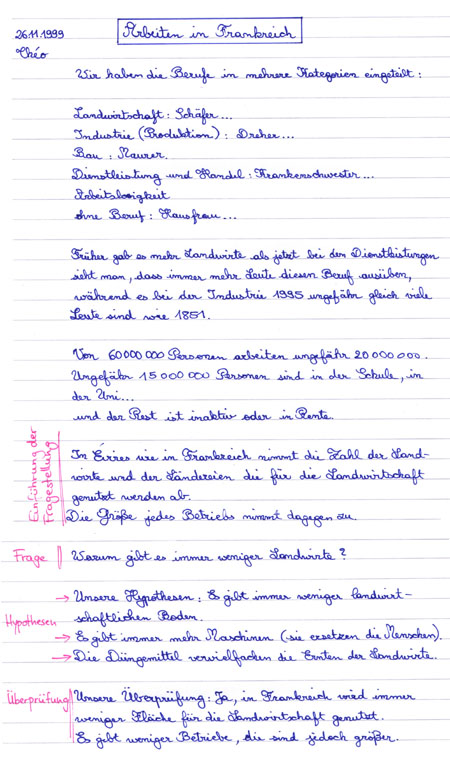 26.11.1999
Arbeiten in Frankreich
Théo
Wir haben die Berufe in mehrere Kategorien eingeteilt :
Landwirtschaft : Schäfer ...
Industrie (Produktion) : Dreher ...
Bau : Maurer.
Dienstleistung und Handel : Krankenschwester ...
Arbeitslosigkeit
ohne Beruf : Hausfrau ...
Früher gab es mehr Landwirte als jetzt bei den Dienstleistungen
sieht man, dass immer mehr Leute diesen Beruf ausüben,
während es bei der Industrie 1995 ungefähr gleich viele
Leute sind wie 1851.
Von 60 000 000 Personen arbeiten ungefähr 20 000 000.
Ungefähr 15 000 000 Personen sind in der Schule, in
der Uni...
und der Rest ist inaktiv oder in Rente.
Einführung der
Fragestellung
In Erres wie in Frankreich nimmt die Zahl der Land-
wirte und der Ländereien die für die Landwirtschaft
genutzt werden ab.
Die Größe jedes Betriebs nimmt dagegen zu.
Frage
Warum gibt es immer weniger Landwirte ?
Hypothesen
→ Unsere Hypothesen : Es gibt immer weniger landwirt-
schaftlichen Boden.
→ Es gibt immer mehr Maschinen (sie ersetzen die Menschen).
→ Die Düngemittel vervielfachen die Ernten der Landwirte.
Überprüfung
Unsere Überprüfung : Ja, in Frankreich wird immer
weniger Fläche für die Landwirtschaft genutzt.
Es gibt weniger Betriebe, die sind jedoch größer.